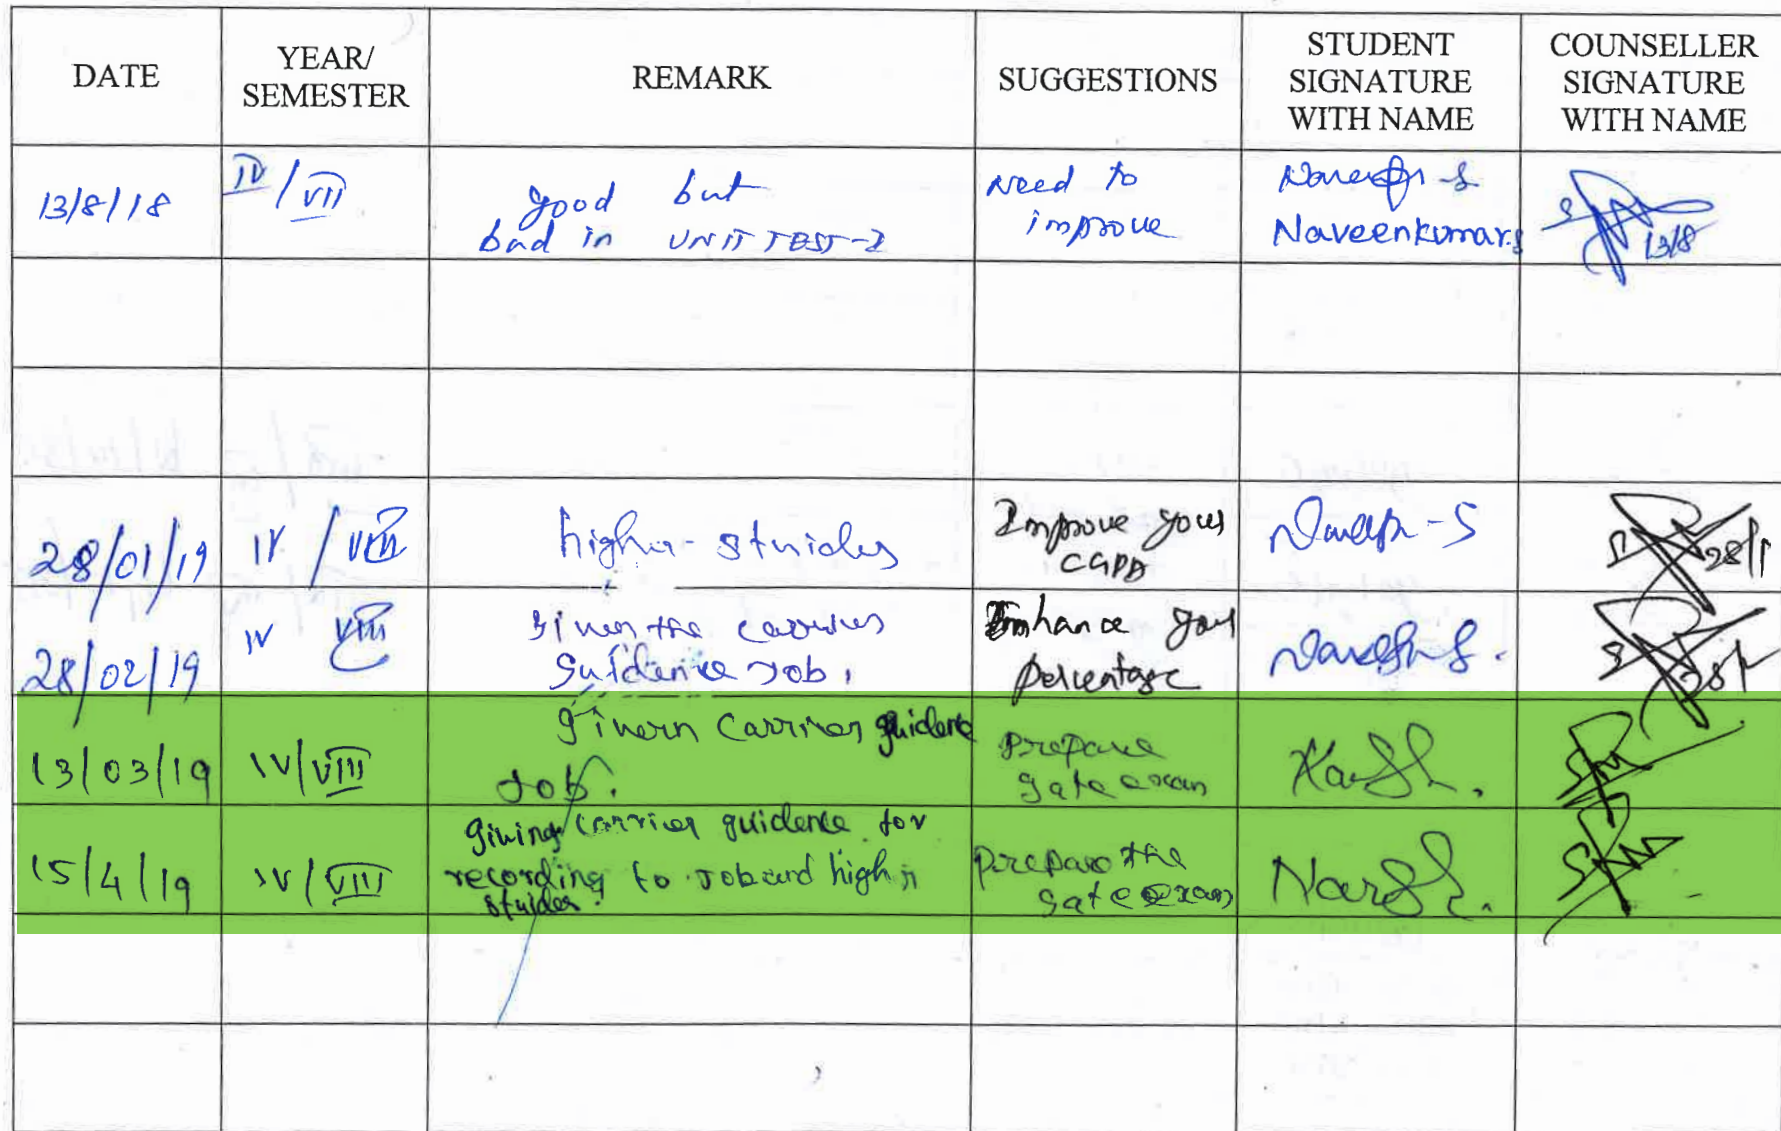 DATE
YEAR/
SEMESTER
REMARK
SUGGESTIONS
STUDENT
SIGNATURE
WITH NAME
COUNSELLER
SIGNATURE
WITH NAME
13/8/18
IV / VII
good but
bad in UNIT TEST-2
Need to
improve
Naveenkumar.S
13/8
28/01/19
IV / VIII
higher studies
Improve your
CGPA
28/1
28/02/19
IV VIII
given the carrier
guidence Job.
Enhance your
percentage
13/03/19
IV/VIII
givern carrier guidence
Job.
prepare
gate exam
15/4/19
IV/VIII
giving carrier guidence for
recording to Job and high
studes.
prepare the
gate exam